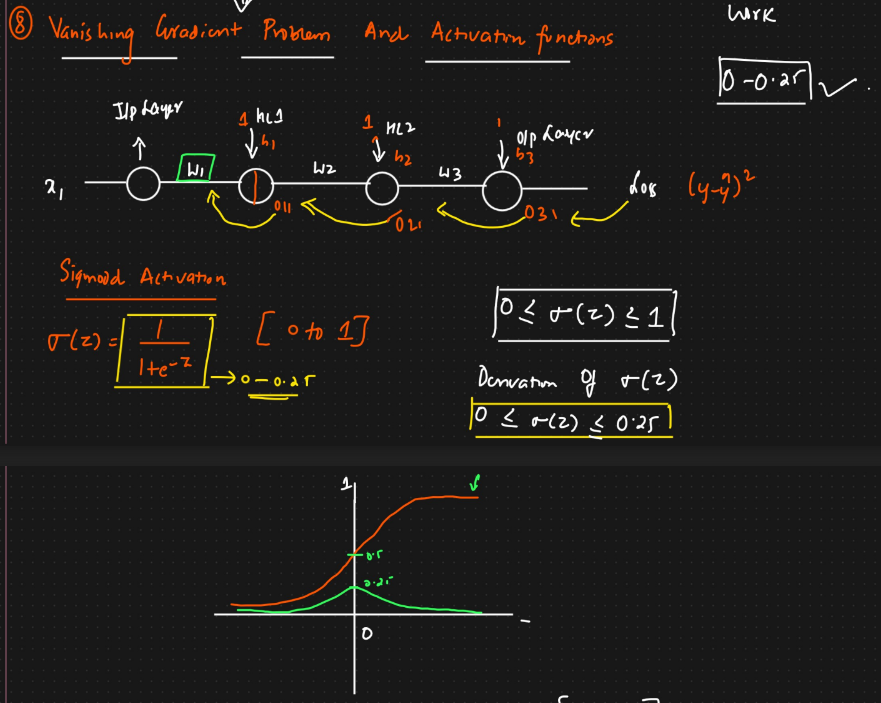 ⑧ Vanishing Gradient Problem And Activation functions
Work
0 - 0.25
I/p Layer
1 HL1
b1
1 HL2
b2
1
O/p Layer
b3
x1
W1
W2
W3
O11
O21
O31
Loss (y-ŷ)²
Sigmoid Activation
σ(z) = 1 / 1+e^-z [0 to 1]
→ 0 - 0.25
0 ≤ σ(z) ≤ 1
Derivation of σ(z)
0 ≤ σ(z) ≤ 0.25
1
0.5
0.25
0